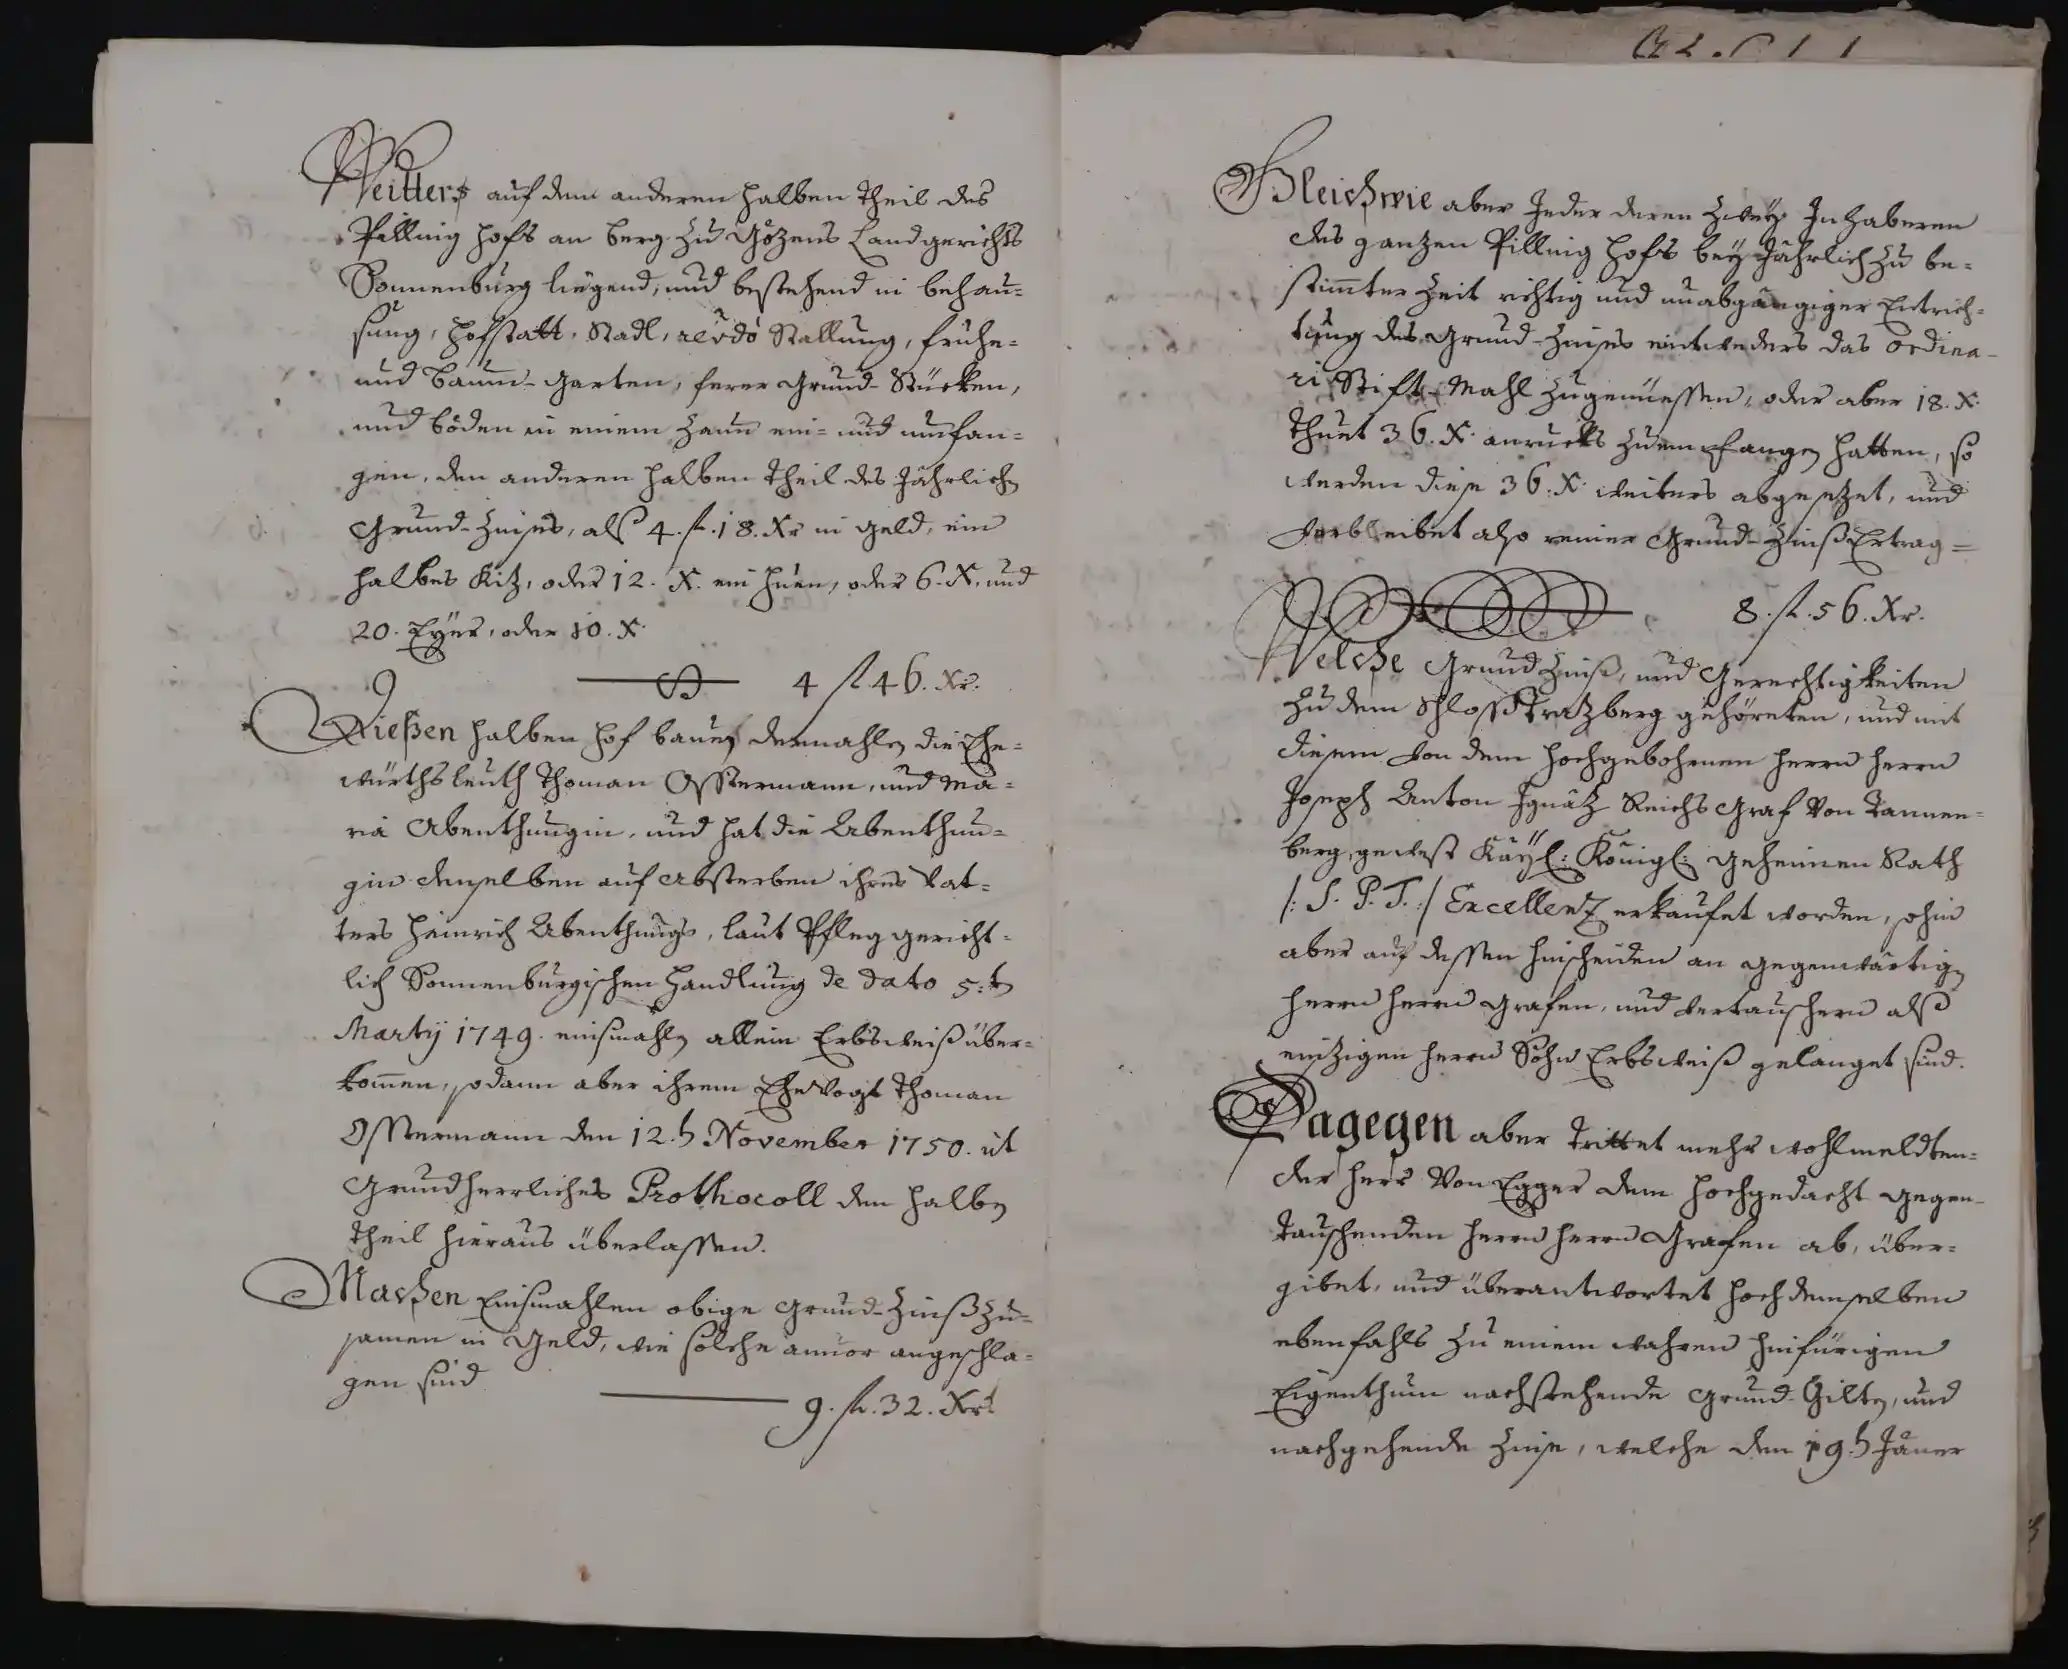 Weitters auf dem anderen halben Theil des
Pillnig Hofs am Berg zu Gözens Landgerichts
Sonnenburg ligend, und bestehend in Behau=
sung, Hofstatt, Stadl, revdo Stallung, Fruhe=
und Baum-Garten, ferer Grund-Stücken,
und Böden in einem Zaun ein= und umfan=
gen, den anderen halben Theil des Jährlichen
Grund-Zinses, alß 4. fl. 18. Xr in Geld, ein
halbes Kiz, oder 12. X. ein Huen, oder 6. X. und
20. Eyer, oder 10. X.
4 fl 46. Xr.
Dießen halben Hof bauen dermahlen die Ehe=
würthsleuth Thoman Ostermann, und Ma=
ria Abenthungin, und hat die Abenthun=
gin denselben auf Absterben ihres Vat=
ters Heinrich Abenthungs, laut Pfleggericht=
lich Sonnenburgischen Handlung de dato 5:t
Marty 1749. einsmahlen allein Erbsweiß über=
kommen, sodann aber ihrem Ehevogt Thoman
Ostermann den 12.t November 1750. ut
Grundherrliches Prothocoll den halben
Theil hieraus überlassen.
Machen Einsmahlen obige Grund-Zinß zu=
samen in Geld, wie solche anvor angeschla=
gen sind
9. fl. 32. Xr.
Gleichwie aber Jeder deren zwey Inhaberen
des ganzen Pillnig Hofs bey Jährlich zu be=
stimmter Zeit richtig und unabgängiger Entrich=
tung des Grund-Zinses entweders das Ordina=
ri Stift-Mahl zugeniessen, oder aber 18. X.
thuet 36. X. anrucks zuempfangen hatten, so
werden diese 36. X. weiters abgesezet, und
verbleibet also reiner Grund-Zinß Ertrag=
8. fl. 56. Xr.
Welche Grund Zinß, und Gerechtigkeiten
zu dem Schloss Tratzberg gehöreten, und mit
diesem von dem Hochgebohrnen Herrn Herrn
Joseph Anton Ignatz Reichs Graf von Tannen=
berg, gewest Kayl: Königl: geheimen Rath
/: S. P. T. :/ Excellenz erkaufet worden, sohin
aber auf dessen Hinscheiden an gegenwärtigen
Herrn Herrn Grafen, und Vertauschern alß
einzigen Herrn Sohn Erbsweiß gelanget sind.
Dagegen aber Trittet mehr wohlmeldten=
der Herr Von Egger dem Hochgedacht gegen=
tauschenden Herrn Herrn Grafen ab, über=
gibet, und überantwortet Hochdemselben
ebenfahls zu einem wahren hinfürigen
Eigenthum nachstehende Grund-Gilten, und
nachgehende Zinse, welche den 19.t Jäner